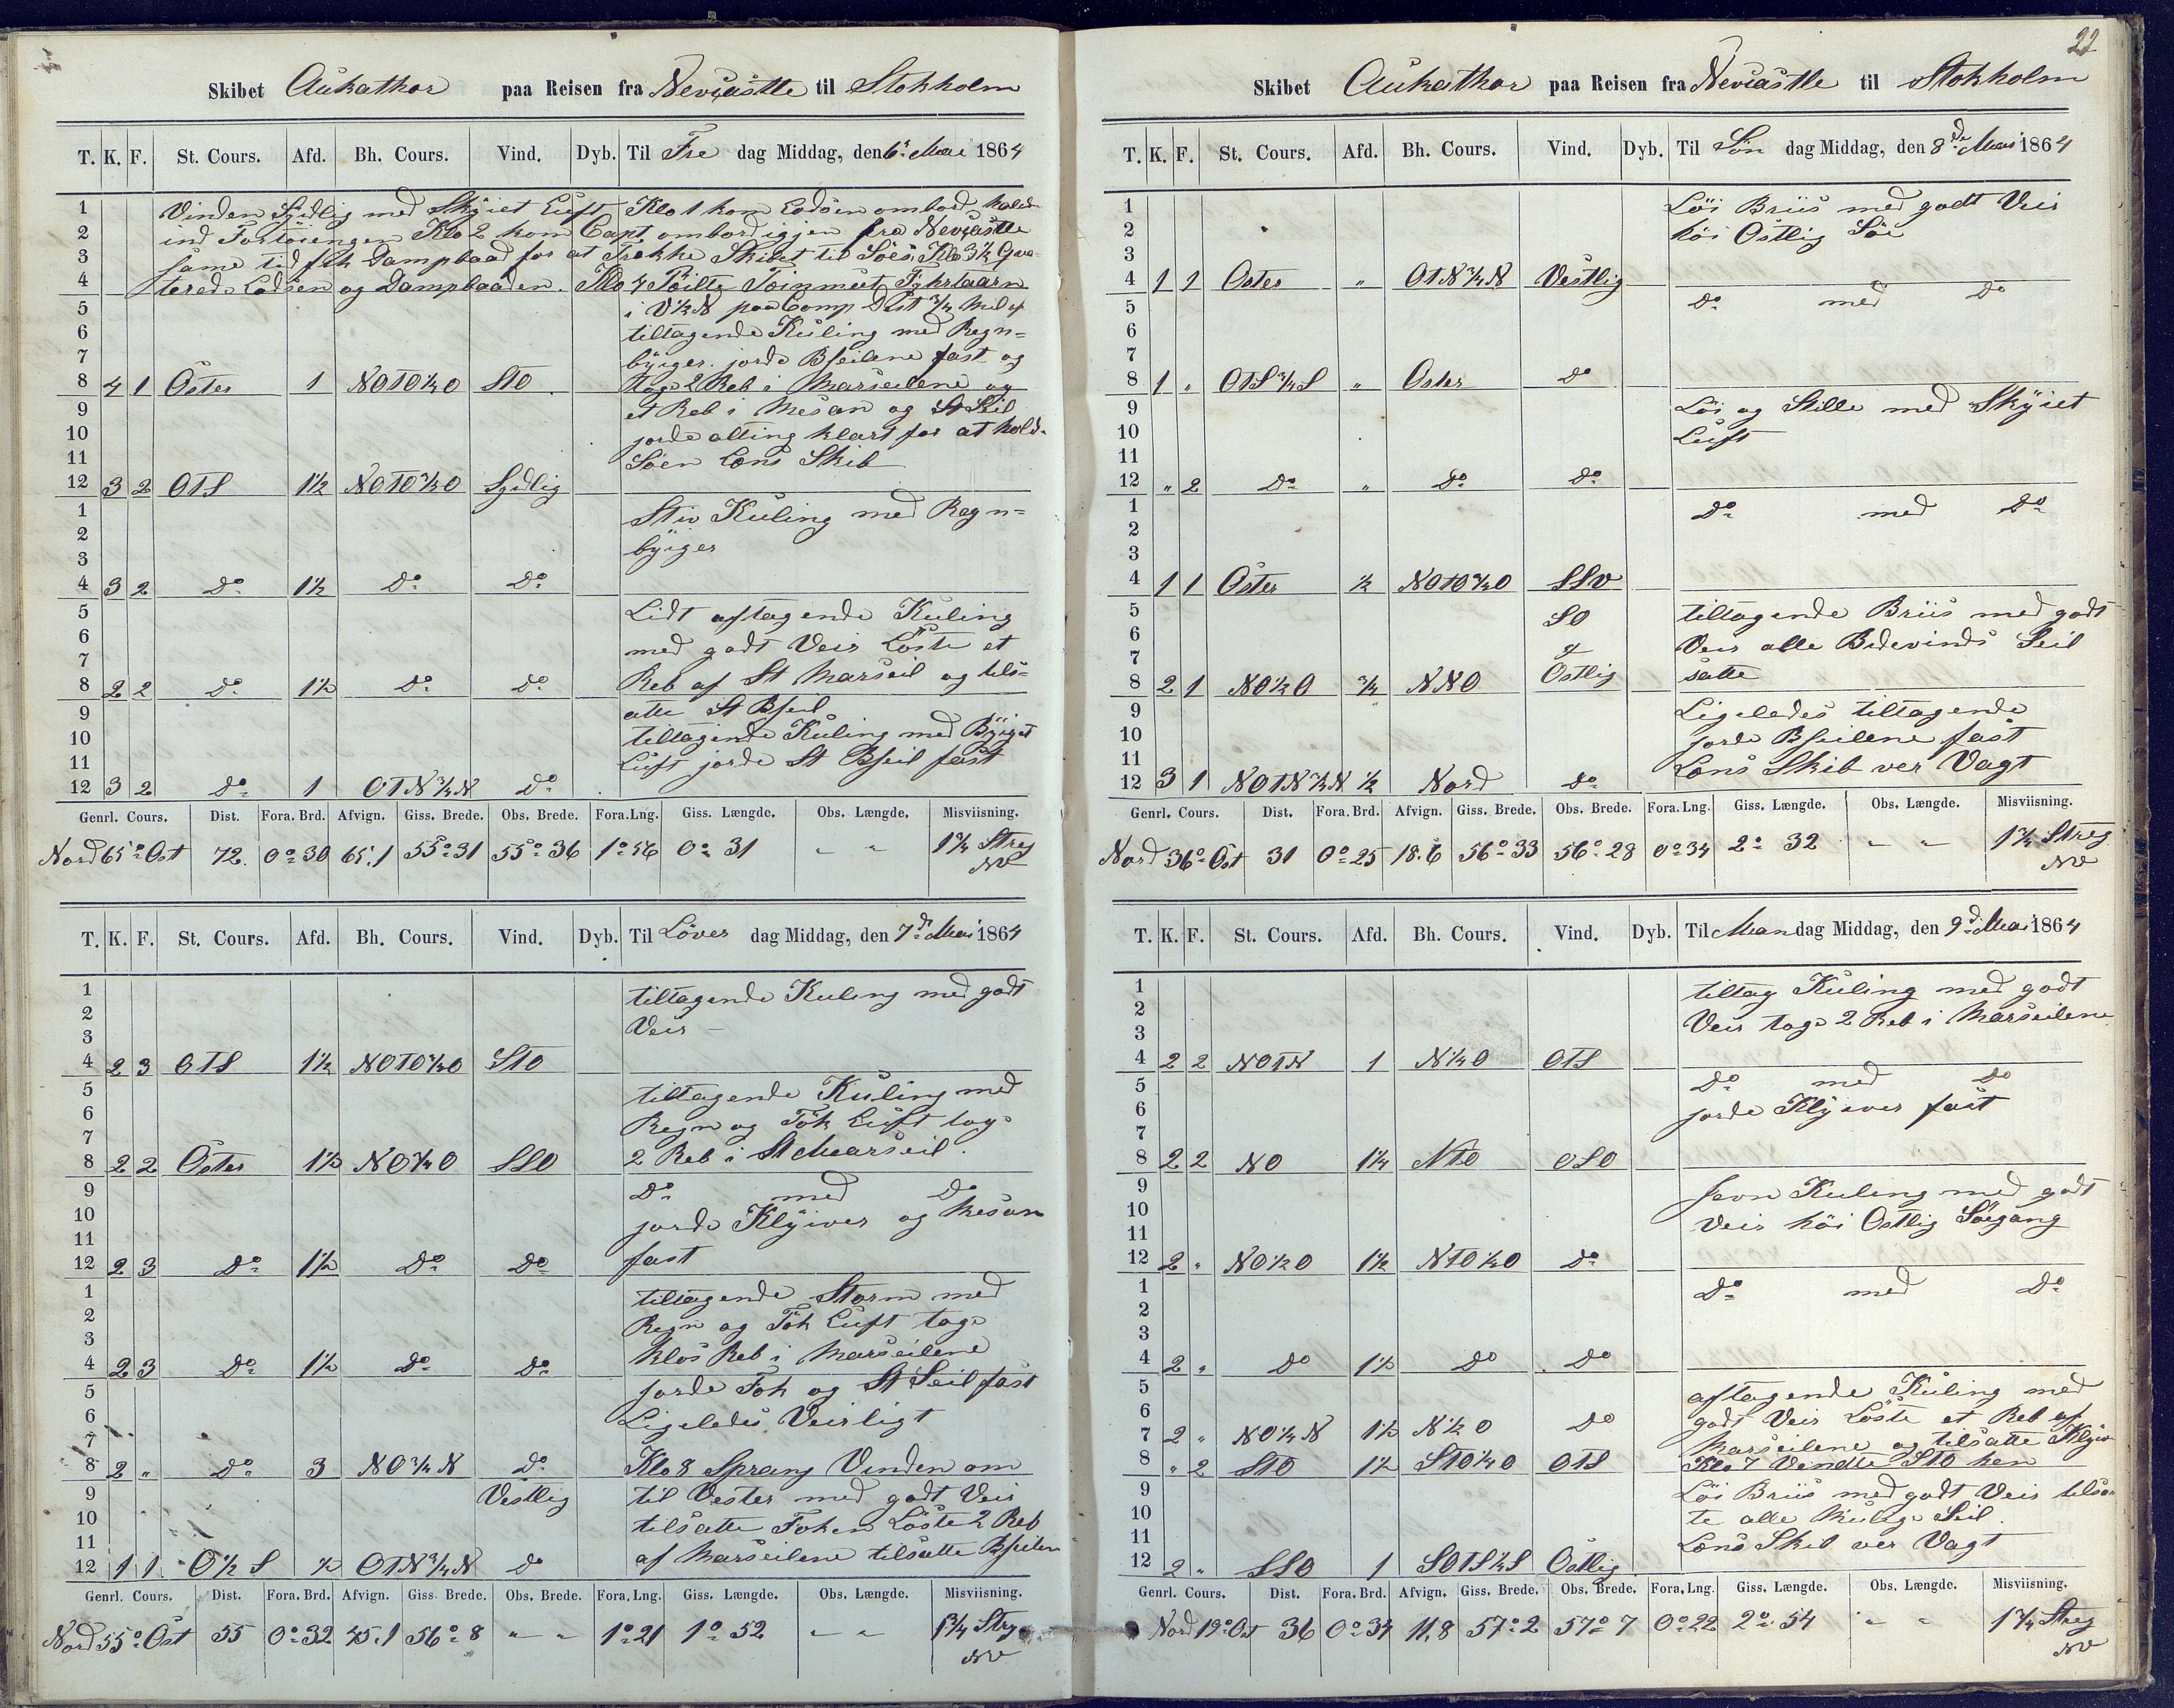 Skibet Aukathor paa Reisen fra Nevcastle til Stokholm
T. K. F. St. Cours. Afd. Bh. Cours. Vind. Dyb. Til Fre dag Middag, den 6d Mai 1864
1 Vinden Sydlig med Skyiet Luft Klo 1 kom Lodsen ombord halede
2 ind Fortöiengen Klo 2 kom Capt ombord igjen fra Nevcastle
3 same tid fik Dampbaad for at Trække Skibet til Söes Klo 3½
4 terede Lodsen og Dampbaaden. Klo 4 Peilte Teinmut Fyhrtaarn
5 i V½N paa Comp Dist ¾ Mil
6 tiltagende Kuling med Regn=
7 byiger. jorde Bseilene fast og
8 4 1 Öster 1 NOTO¼O STO toge 2 Reb i Marseilene og
9 et Reb i Mesan og St Seil
10 jorde alting klart for at holde
11 Söen Lens Skib
12 3 2 OTS 1½ NOTO¾O Sydlig
1 Stiv Kuling med Regn=
2 byiger
3
4 3 2 Do 1½ Do Do
5 Lidt aftagende Kuling
6 med godt Veir Löste et
7
8 2 2 Do 1½ Do Do Reb af St Marseil og tils=
9 atte St Bseil
10 tiltagende Kuling med Byiget
11 Luft jorde St Bseil fast
12 3 2 Do 1 OTN¾N Do
Genrl. Cours. Dist. Fora. Brd. Afvign. Giss. Brede. Obs. Brede. Fora. Lng. Giss. Længde. Obs. Længde. Misviisning.
Nord 65° Ost 72. 0° 30 65.1 55° 31 55° 36 1° 56 0° 31 " " 1¾ Streg
NV
T. K. F. St. Cours. Afd. Bh. Cours. Vind. Dyb. Til Löver dag Middag, den 7d Mai 1864
1 tiltagende Kuling med godt
2 Veir
3
4 2 3 OTS 1½ NOTO¼O STO
5 tiltagende Kuling med
6 Regn og Tök Luft toge
7
8 2 2 Öster 1½ NO¾O SSO 2 Reb i St Marseil.
9 Do med Do
10 jorde Klyiver og Mesan
11
12 2 3 Do 1½ Do Do fast
1 tiltagende Storm med
2 Regn og Tök Luft toge
3 klos Reb i Marseilene
4 2 3 Do 1½ Do Do
5 jorde Fok og St Seil fast
6 Ligeledes Veirligt
7
8 2 " Do 3 NO¾N Do Klo 8 Sprang Vinden om
9 Vestlig til Vester med godt Veir
10 tilsatte Foken Löste 2 Reb
11 af Marseilene tilsatte Bseilene
12 1 1 O½S ½ OTN¾N do
Genrl. Cours. Dist. Fora. Brd. Afvign. Giss. Brede. Obs. Brede. Fora. Lng. Giss. Længde. Obs. Længde. Misviisning.
Nord 55° Ost 55 0° 32 45.1 56° 8 " " 1° 21 1° 52 " " 1¾ Streg
NV
22
Skibet Aukathor paa Reisen fra Nevcastle til Stokholm
T. K. F. St. Cours. Afd. Bh. Cours. Vind. Dyb. Til Sön dag Middag, den 8de Mai 1864
1 Löi Briis med godt Veir
2 höi Östlig Söe
3
4 1 1 Oster " OTN¾N Vestlig
5 Do med Do
6
7
8 1 " OTS¾S " Oster Do
9 Löi og Stille med Skyiet
10 Luft
11
12 " 2 Do " Do Do
1 Do med Do
2
3
4 1 1 Öster ½ NOTO¾O SSV
5 SO tiltagende Briis med godt
6 Veir alle Bidevinds Seil
7 &
8 2 1 NO½O ¾ NNO Östlig satte
9 Ligeledes tiltagende
10 jorde Bseilene fast
11 Lens Skib ver Vagt
12 3 1 NOTN¾N ½ Nord do
Genrl. Cours. Dist. Fora. Brd. Afvign. Giss. Brede. Obs. Brede. Fora. Lng. Giss. Længde. Obs. Længde. Misviisning.
Nord 36° Ost 31 0° 25 18.6 56° 33 56° 28 0° 34 2° 32 " " 1¾ Streg
NV
T. K. F. St. Cours. Afd. Bh. Cours. Vind. Dyb. Til Man dag Middag, den 9d Mai 1864
1 tiltag Kuling med godt
2 Veir toge 2 Reb i Marseilene
3
4 2 2 NOTN 1 N¼O OTS
5 Do med Do
6 jorde Klyiver fast
7
8 2 2 NO 1¼ NTO OSO
9 Jevn Kuling med godt
10 Veir höi Ostlig Söegang
11
12 2 " NO½O 1½ NTO½O Do
1 Do med Do
2
3
4 2 " Do 1½ Do Do
5 aftagende Kuling med
6 godt Veir Löste et Reb af
7 2 " NO¼N 1½ N½O Do Marseilene og tilsatte Klyiv
8 " 2 STO 1½ STO¼O OTS Klo 7 Vendte STO hen
9 Löi Briis med godt Veir tilsa=
10 te alle Mulige Seil.
11 Lens Skib ver Vagt
12 2 " SSO 1 SOTS½S Östlig
Genrl. Cours. Dist. Fora. Brd. Afvign. Giss. Brede. Obs. Brede. Fora. Lng. Giss. Længde. Obs. Længde. Misviisning.
Nord 19° Ost 36 0° 34 11,8 57° 2 57° 7 0° 22 2° 54 " " 1¾ Streg
NV